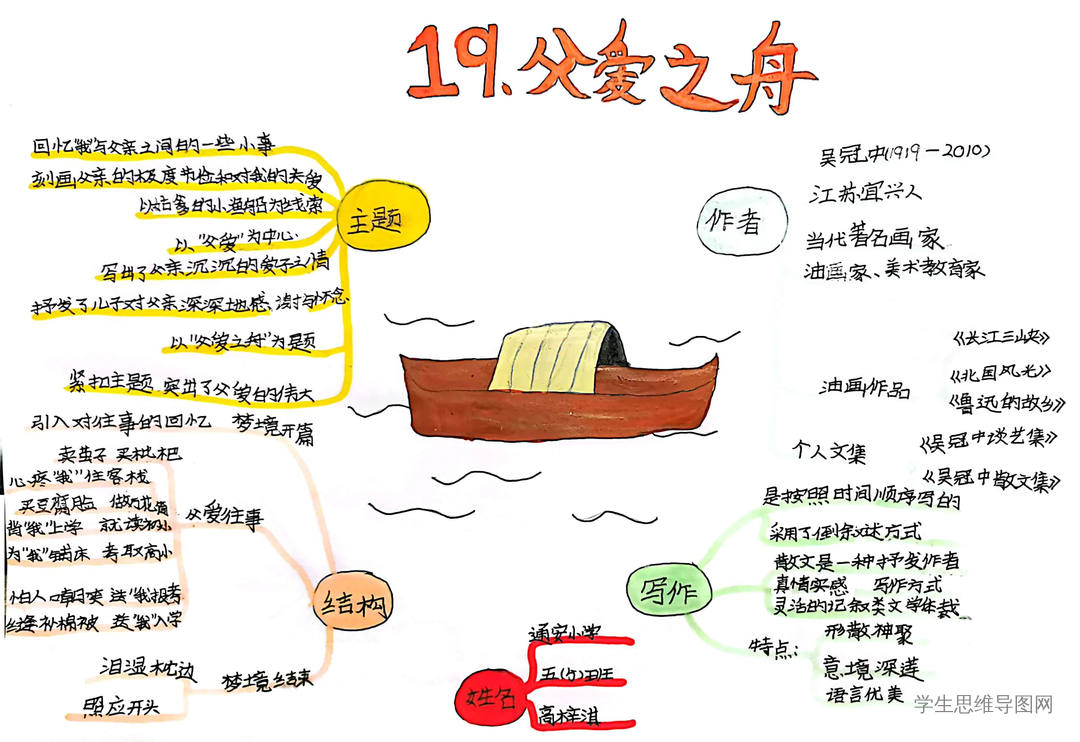 19、父爱之舟
主题
回忆"我"与父亲之间的一些小事
刻画父亲的极度节俭和对我的关爱
以姑爹的小渔船为线索
以"父爱"为中心
写出了父亲沉沉的爱子之情
抒发了儿子对父亲深深地感、谢与怀念
以"父爱之舟"为题
紧扣主题 突出了父爱的伟大
作者
吴冠中(1919-2010)
江苏宜兴人
当代著名画家
油画家、美术教育家
油画作品
《长江三峡》
《北国风光》
《鲁迅的故乡》
个人文集
《吴冠中谈艺集》
《吴冠中散文集》
结构
引入对往事的回忆 梦境开篇
父爱往事
卖茧子 买枇杷
心疼"我"住客栈
买豆腐脑 做万花筒
背"我"上学 就读初小
为"我"铺床 考取高小
怕人 送"我"报考
缝补棉被 送"我"入学
梦境结束
泪湿枕边
照应开头
写作
是按照时间顺序写的
采用了倒叙述方式
散文是一种抒发作者
真情实感 写作方式
灵活的记叙类文学体裁
特点:
形散神聚
意境深莲
语言优美
姓名
通安小学
高梓淇
学生思维导图网